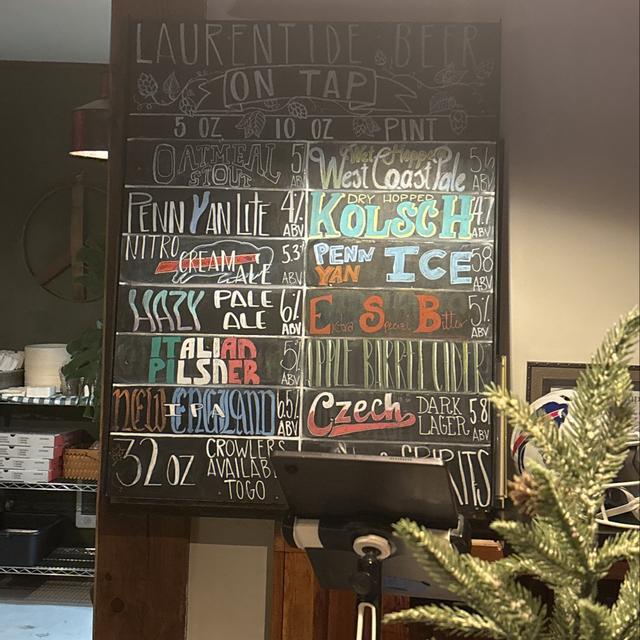 LAURENTIDE BEER
ON TAP
5 OZ 10 OZ PINT
OATMEAL STOUT 5
Wet Hopped West Coast Pale
PENN YAN LITE 4% ABV
DRY HOPPED KOLSCH ABV
NITRO CREAM ALE 5.3 ABV
PENN YAN ICE 5.8 ABV
HAZY PALE ALE 6% ABV
Extra Special Bitter 5% ABV
ITALIAN PILSNER 5% ABV
APPLE BARREL CIDER
NEW ENGLAND IPA 6.5% ABV
Czech DARK LAGER 5.8 ABV
32 OZ CROWLERS AVAILABLE TO GO
SPIRITS